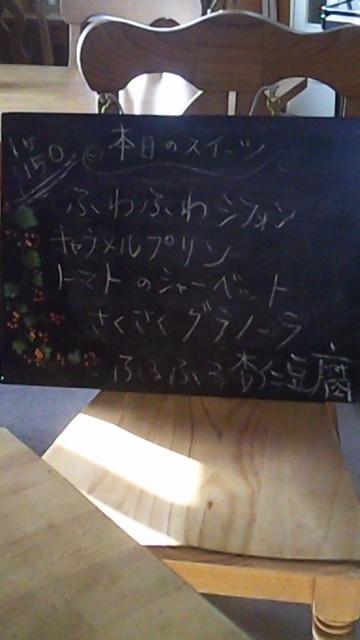 本日のスイーツ
150
ふわふわシフォン
キャラメルプリン
トマトのシャーベット
さくさくグラノーラ
ふるふる杏仁豆腐